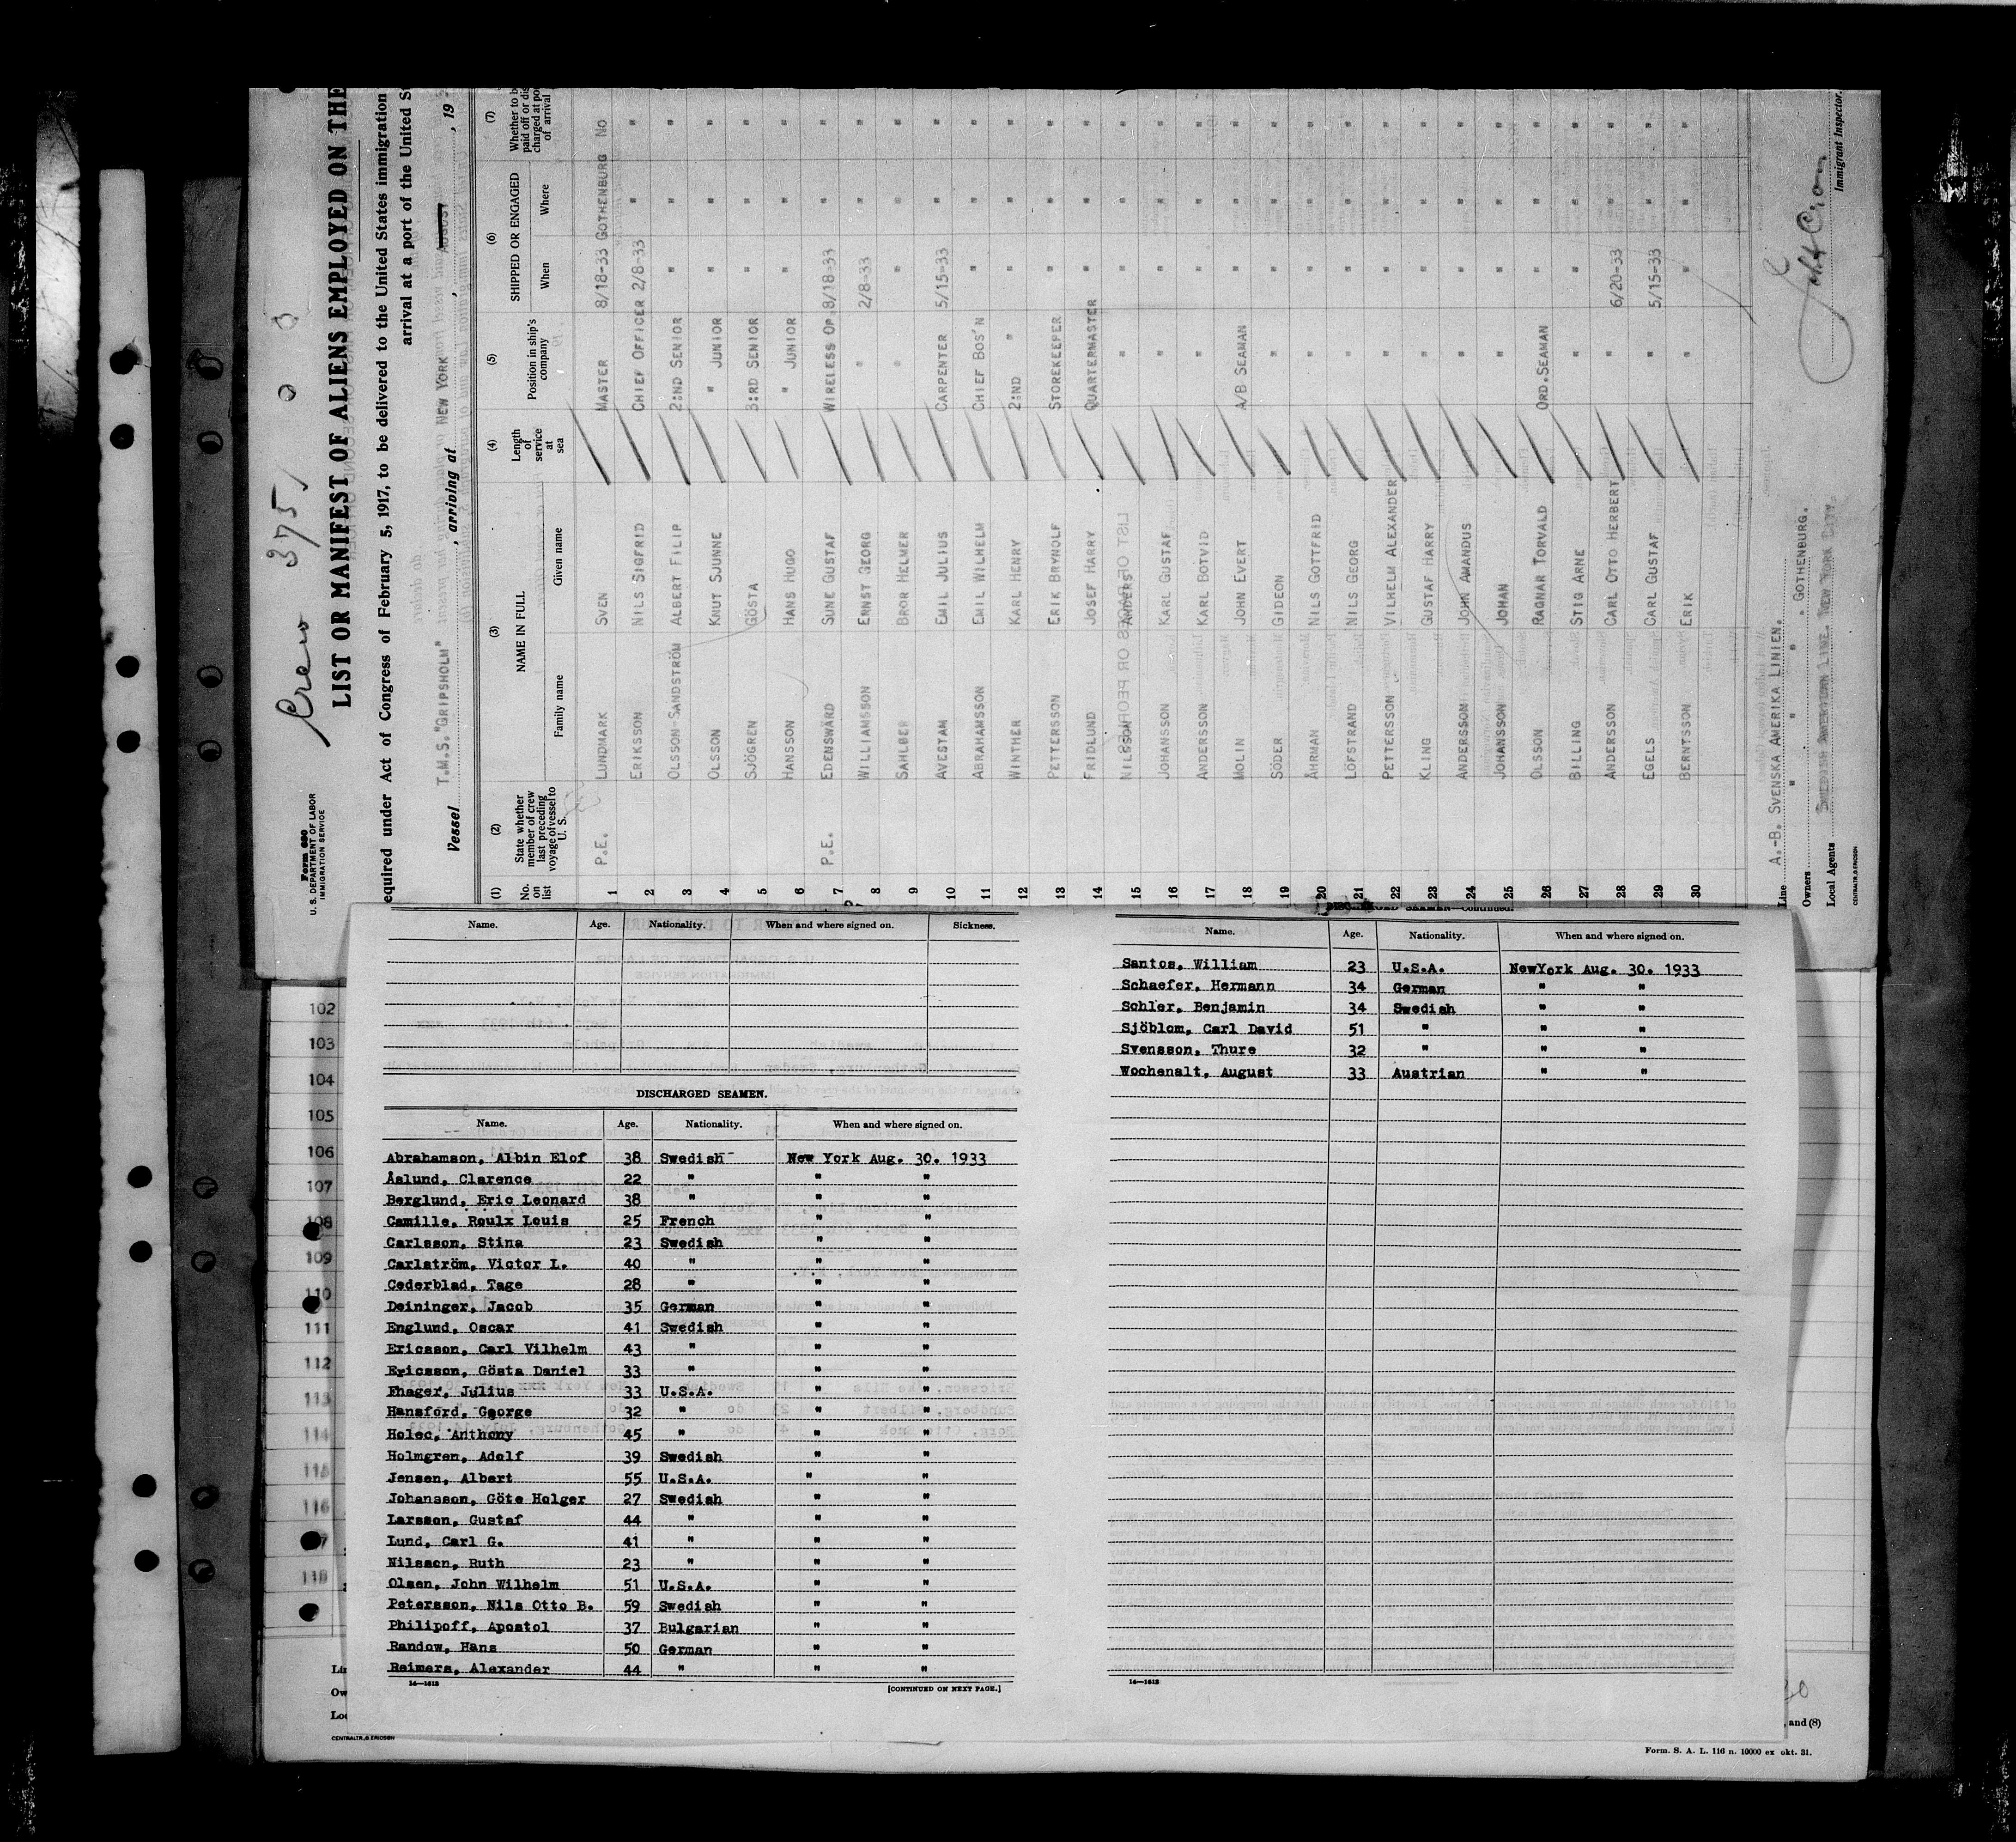 Crew 3751
Form 680
U. S. DEPARTMENT OF LABOR
IMMIGRATION SERVICE
LIST OR MANIFEST OF ALIENS EMPLOYED ON THE
equired under Act of Congress of February 5, 1917, to be delivered to the United States immigration
arrival at a port of the United St
Vessel T.M.S. "GRIPSHOLM" , arriving at NEW YORK , AUGUST , 19
(1) No. on list (2) State whether member of crew last preceding voyage of vessel to U. S. (3) NAME IN FULL Family name Given name (4) Length of service at sea (5) Position in ship's company (6) SHIPPED OR ENGAGED When Where (7) Whether to b paid off or dis charged at por of arrival
1 P.E. LUNDMARK SVEN MASTER 8/18-33 GOTHENBURG No
2 ERIKSSON NILS SIGFRID CHIEF OFFICER 2/8-33 " "
3 OLSSON-SANDSTRÖM ALBERT FILIP 2:ND SENIOR " " "
4 OLSSON KNUT SJUNNE " JUNIOR " " "
5 SJÖGREN GÖSTA 3:RD SENIOR " " "
6 HANSSON HANS HUGO " JUNIOR " " "
7 P.E. EDENSWÄRD SUNE GUSTAF WIRELESS OP. 8/18-33 " "
8 WILLIAMSSON ERNST GEORG " 2/8-33 " "
9 SAHLBER BROR HELMER " " " "
10 AVESTAM EMIL JULIUS CARPENTER 5/15-33 " "
11 ABRAHAMSSON EMIL WILHELM CHIEF BOS'N " " "
12 WINTHER KARL HENRY 2:ND " " " "
13 PETTERSSON ERIK BRYNOLF STOREKEEPER " " "
14 FRIDLUND JOSEF HARRY QUARTERMASTER " " "
15 NILSSON ANDERS " " " "
16 JOHANSSON KARL GUSTAF " " " "
17 ANDERSSON KARL BOTVID " " " "
18 MOLIN JOHN EVERT A/B SEAMAN " " "
19 SÖDER GIDEON " " " "
20 ÅHRMAN NILS GOTTFRID " " " "
21 LÖFSTRAND NILS GEORG " " " "
22 PETTERSSON VILHELM ALEXANDER " " " "
23 KLING GUSTAF HARRY " " " "
24 ANDERSSON JOHN AMANDUS " " " "
25 JOHANSSON JOHAN " " " "
26 OLSSON RAGNAR TORVALD ORD.SEAMAN " " "
27 BILLING STIG ARNE " " " "
28 ANDERSSON CARL OTTO HERBERT " 6/20-33 " "
29 EGELS CARL GUSTAF " 5/15-33 " "
30 BERNTSSON ERIK " " " "
Line A.-B. SVENSKA AMERIKA LINIEN.
Owners " " " . GOTHENBURG.
Local Agents SWEDISH AMERICAN LINE. NEW YORK CITY.
Immigrant Inspector.
CENTRALTR, G. ERICSON
102
103
104
105
106
107
108
109
110
111
112
113
114
115
116
117
118
Name. Age. Nationality. When and where signed on. Sickness.
DISCHARGED SEAMEN.
Name. Age. Nationality. When and where signed on.
Abrahamson, Albin Elof 38 Swedish New York Aug. 30. 1933
Åslund, Clarence 22 " " "
Berglund, Eric Leonard 38 " " "
Camille, Roulx Louis 25 French " "
Carlsson, Stina 23 Swedish " "
Carlström, Victor L. 40 " " "
Cederblad, Tage 28 " " "
Deininger, Jacob 35 German " "
Englund, Oscar 41 Swedish " "
Ericsson, Carl Vilhelm 43 " " "
Ericsson, Gösta Daniel 33 " "
Fhager, Julius 33 U.S.A. " "
Hansford, George 32 " " "
Holec, Anthony 45 " " "
Holmgren, Adolf 39 Swedish " "
Jensen, Albert 55 U.S.A. " "
Johansson, Göte Holger 27 Swedish " "
Larsson, Gustaf 44 " " "
Lund, Carl G. 41 " " "
Nilsson, Ruth 23 " " "
Olsen, John Wilhelm 51 U.S.A. " "
Petersson, Nils Otto B. 59 Swedish " "
Philipoff, Apostol 37 Bulgarian " "
Randow, Hans 50 German " "
Reimers, Alexander 44 " " "
14—1613
[CONTINUED ON NEXT PAGE.]
DISCHARGED SEAMEN—Continued.
Name. Age. Nationality. When and where signed on.
Santos, William 23 U.S.A. NewYork Aug. 30. 1933
Schaefer, Hermann 34 German " "
Schler, Benjamin 34 Swedish " "
Sjöblom, Carl David 51 " " "
Svensson, Thure 32 " " "
Wochenalt, August 33 Austrian " "
14—1613
Lin
Ow
Loc
CENTRALTR, G. ERICSON
, and (8)
Form. S. A. L. 116 n. 10000 ex okt. 31.